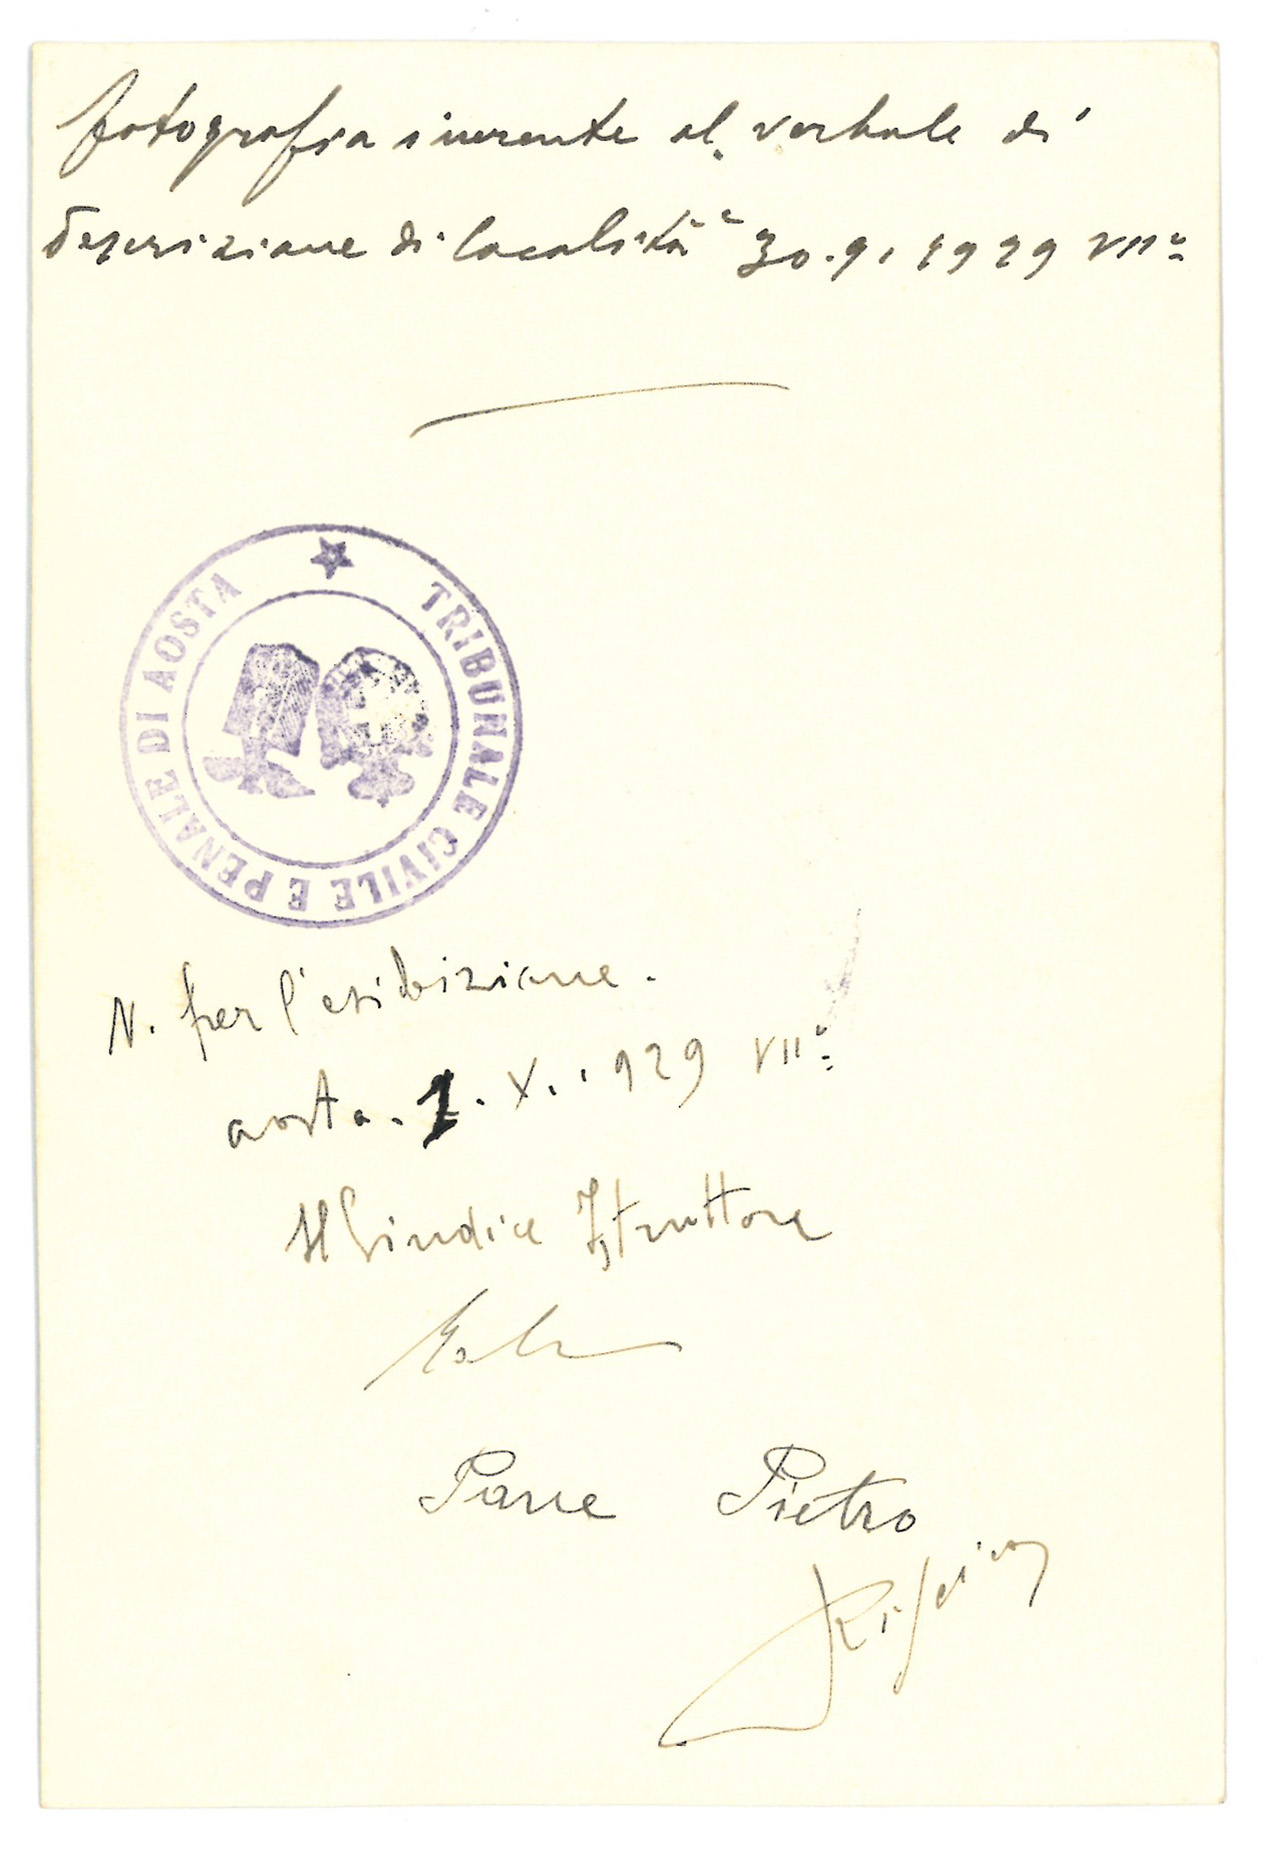 fotografia inerente al verbale di
descrizione di località 30.9.1929 VIIº
TRIBUNALE CIVILE E PENALE DI AOSTA
N. per l'esibizione.
aosta. 1. X. 1929 VIIº
Il Giudice Istruttore
Pane Pietro